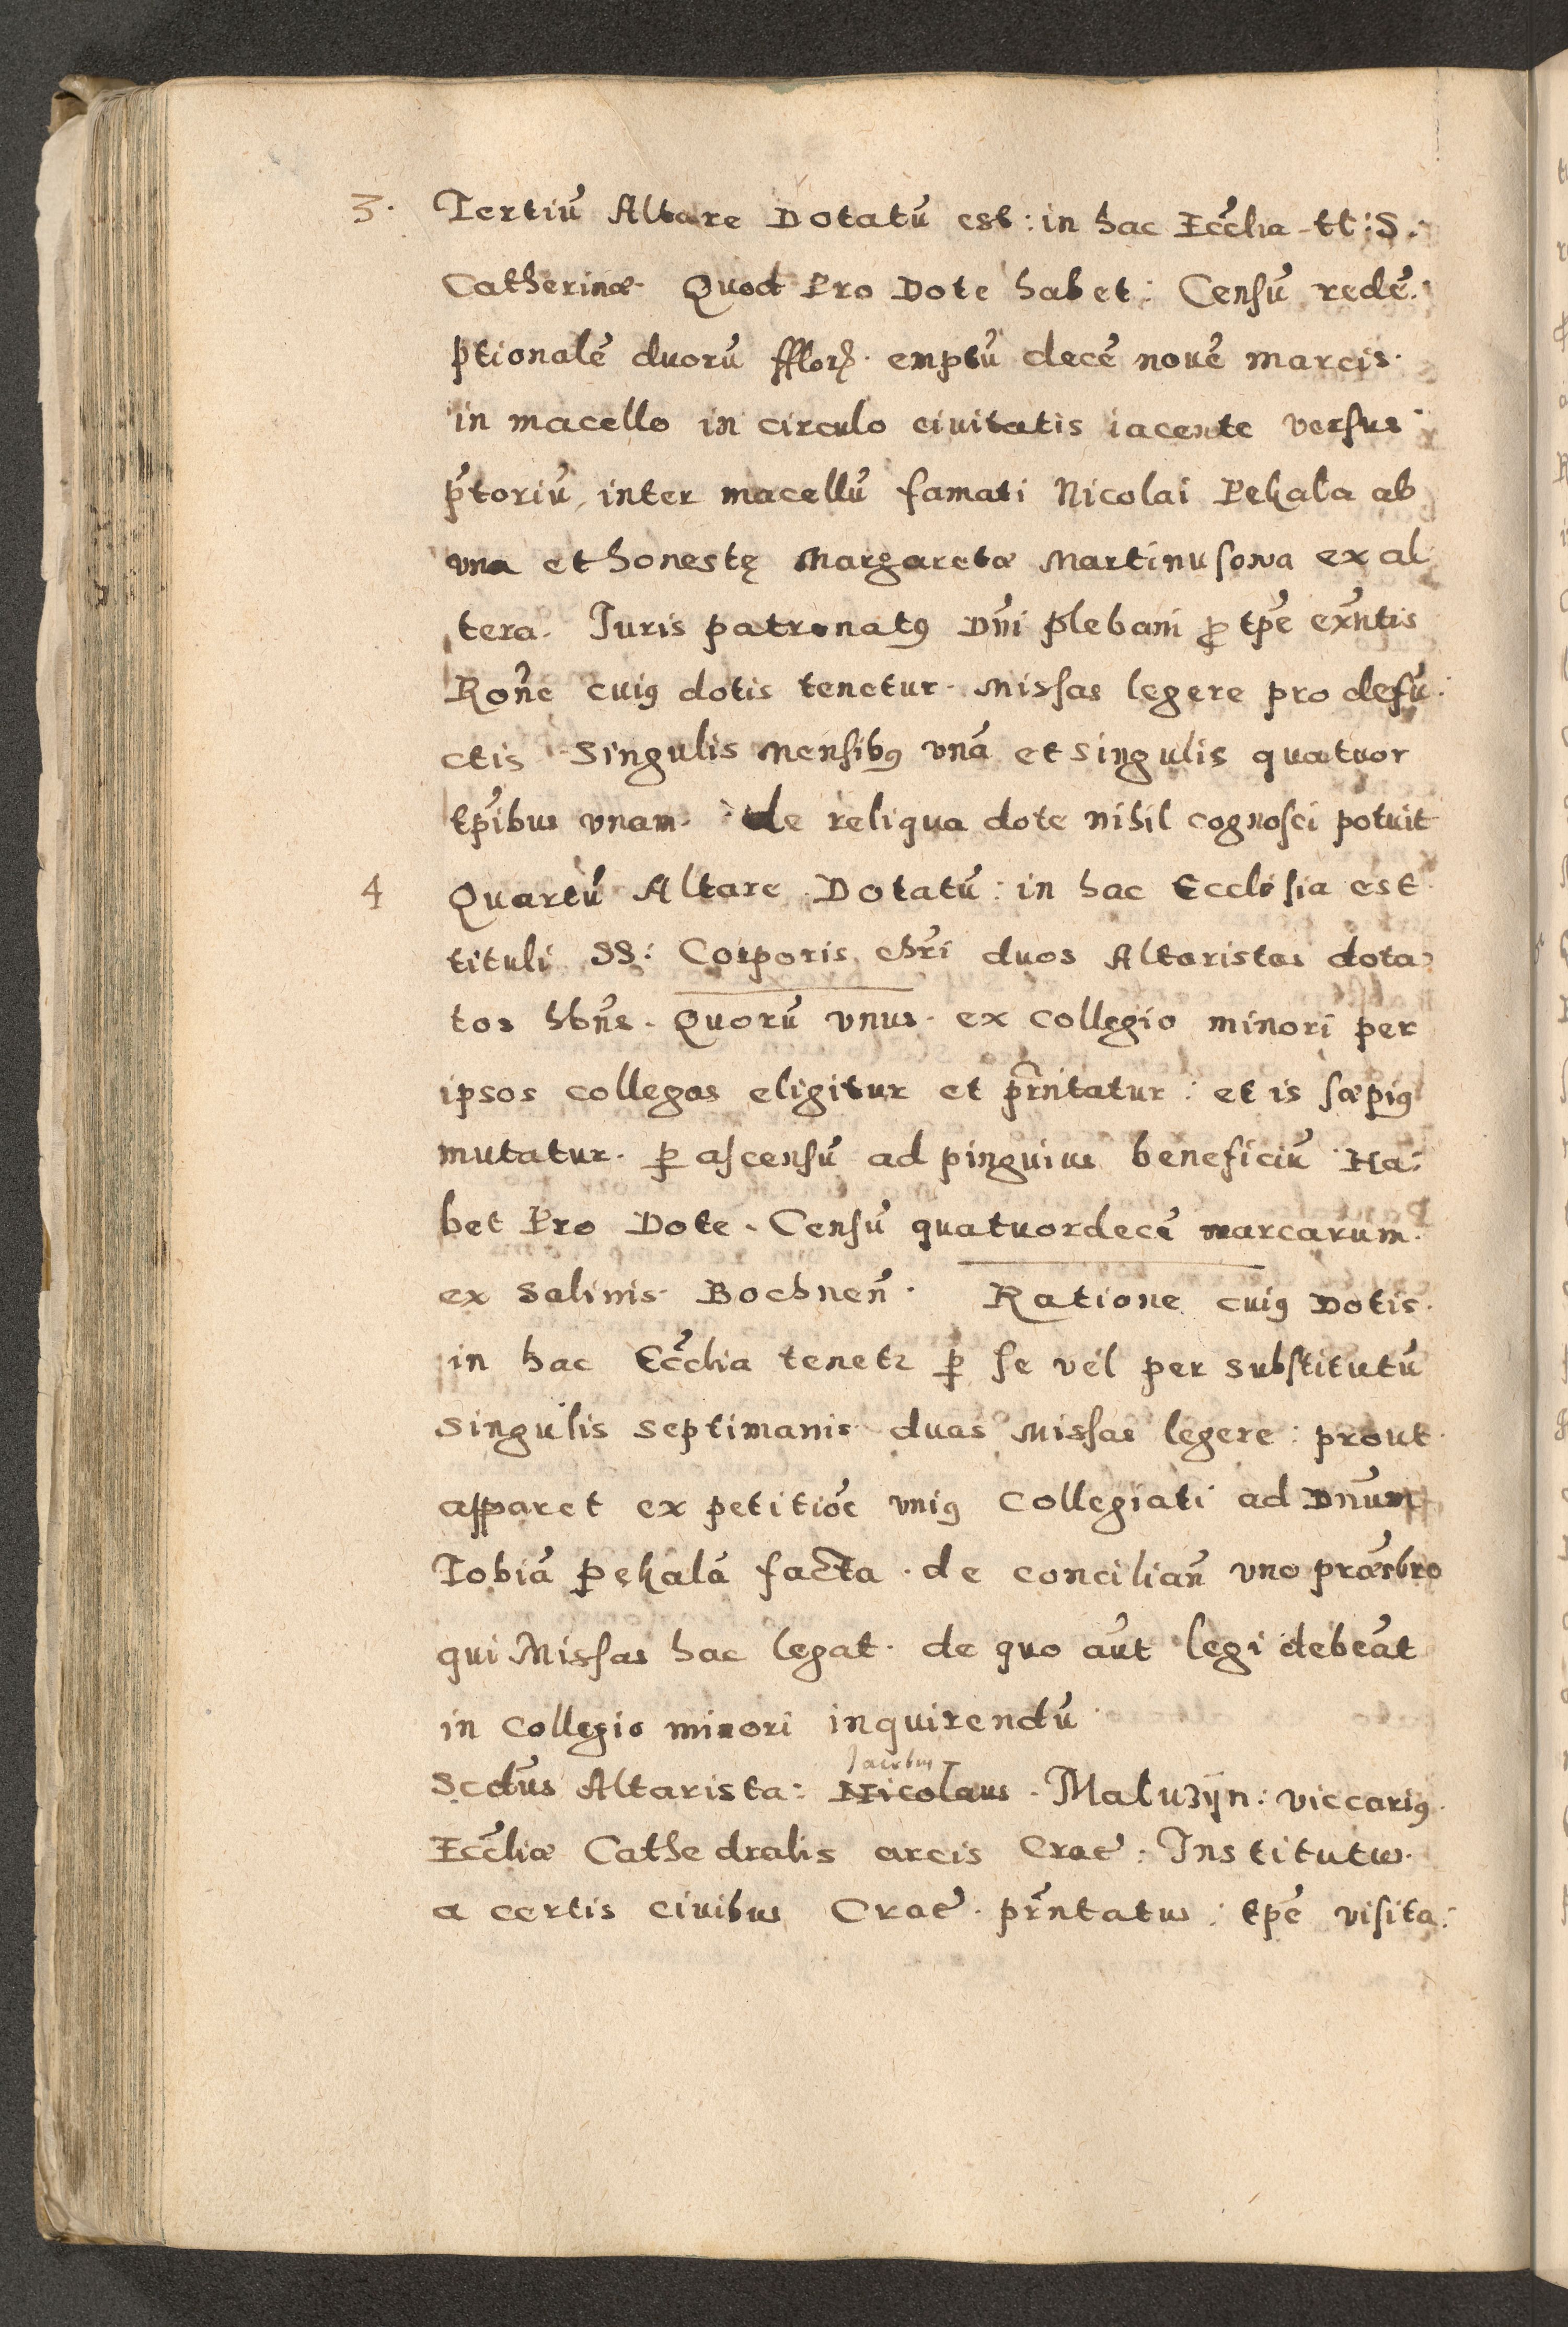 3. Tertiũ Altare Dotatũ est: in hac Ecc̃lia tt: S.
Catherinæ. Quod Pro Dote habet: Censũ redẽ:
ptionalẽ duorũ fflorꝝ. emptũ decẽ nouẽ marcis.
in macello in circulo ciuitatis iacente versus
p̃toriũ, inter macellũ famati Nicolai Pekala ab
vna et honestę Margaretæ Martinusowa ex al
tera. Iuris patronatꝰ Dñi plebani ꝓ tp̃e exñtis
Rõne cuiꝰ dotis tenetur. Missas legere pro defũ:
ctis singulis mensibꝰ vnã et singulis quatuor
tp̃ibus vnam. de reliqua dote nihil cognosci potuit
4 Quartũ Altare Dotatũ: in hac Ecclesia est
tituli SS: Corporis chr̃i duos Altaristas dota
tos hñs. Quorũ vnus. ex collegio minori per
ipsos collegas eligitur et pr̃ntatur: et is sæpiꝰ
mutatur. ꝑ ascensũ ad pinguius beneficiũ Ha:
bet Pro Dote. Censũ quatuordecẽ marcarum.
ex Salinis Bochneñ. Ratione cuiꝰ Dotis.
in hac Ecc̃lia tenetꝛ ꝑ se vel per substitutũ
singulis septimanis duas Missas legere: prout
apparet ex petitiõe vniꝰ Collegiati ad Dñum
Tobiã Pękalã facta. de concilian̄ vno præsbro
qui Missas hac legat. de quo aũt legi debeãt
in collegio minori inquirendũ
Jacobus
Scdũs Altarista: Nicolaus. Maluzÿn: viccariꝰ.
Ecc̃liæ Cathedralis arcis Crac̃: Institutus.
a certis ciuibus Crac̃. pr̃ntatus: tp̃e visita: